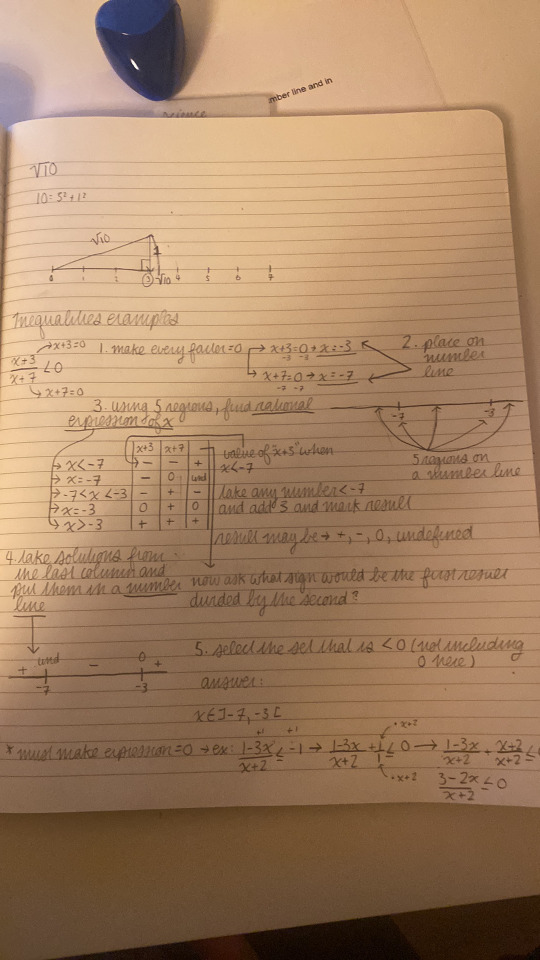 mber line and in
science
√10
10 = 3² + 1²
√10 1
0 1 2 3 √10 4 5 6 7
Inequalities examples
x+3=0
x+3/x+7 < 0
x+7=0
1. make every factor=0
x+3=0 → x=-3
-3 -3
x+7=0 → x=-7
-7 -7
2. place on number line
-7 -3
5 regions on a number line
3. using 5 regions, find rational
expression of x
x+3 x+7
x<-7 - - +
x=-7 - 0 und
-7<x<-3 - + -
x=-3 0 + 0
x>-3 + + +
value of "x+3" when
x<-7
take any number<-7
and add 3 and mark result
result may be → +, -, 0, undefined
4. take solutions from
the last column and
put them in a number
line
now ask what sign would be the first result
divided by the second?
+ und - 0 +
-7 -3
5. select the set that is <0 (not including
0 here)
answer:
x∈]-7, -3[
+1 +1 ·x+2
* must make expression=0 → ex: 1-3x/x+2 ≤ -1 → 1-3x/x+2 + 1/1 ≤ 0 → 1-3x/x+2 + x+2/x+2 ≤
·x+2
3-2x/x+2 ≤ 0